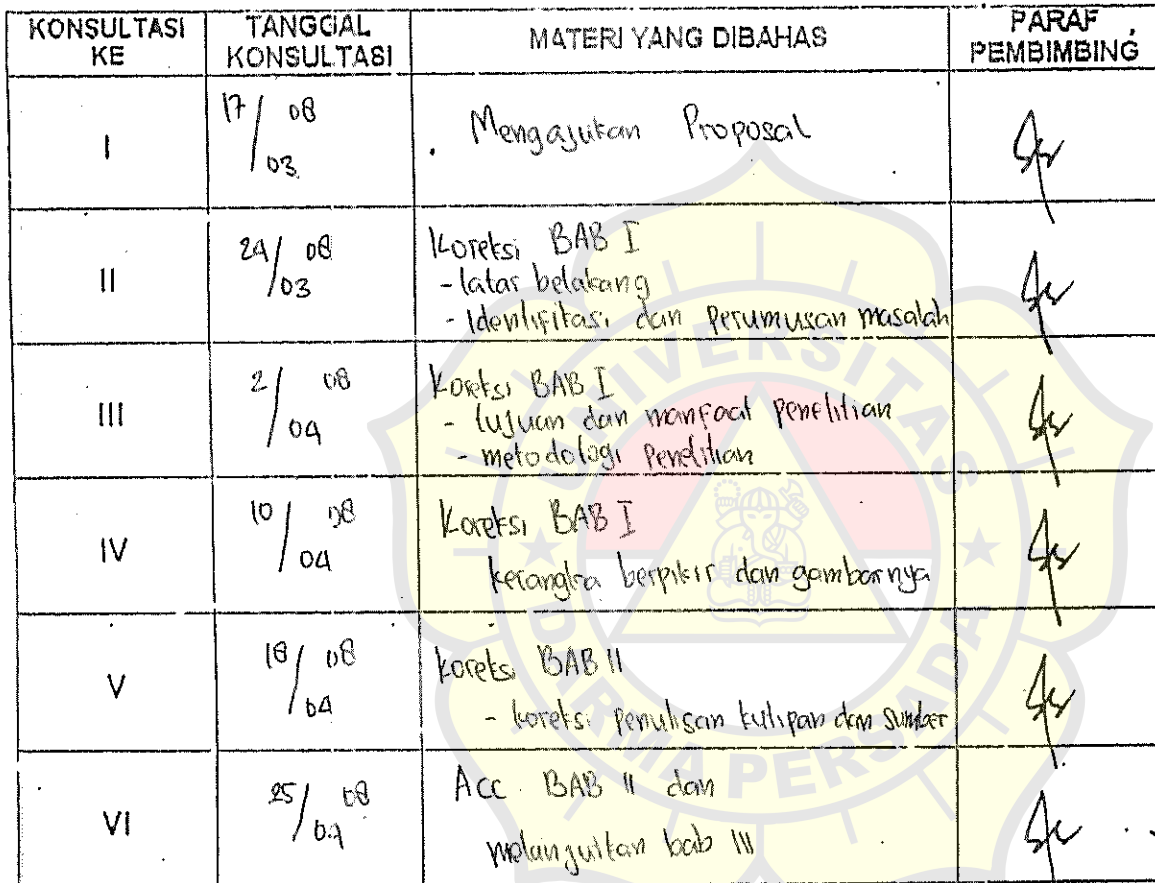 KONSULTASI KE
TANGGAL KONSULTASI
MATERI YANG DIBAHAS
PARAF PEMBIMBING
I
17/03 08
Mengajukan Proposal
II
24/03 08
Koreksi BAB I
- latar belakang
- Identifikasi dan Perumusan masalah
III
2/04 08
Koreksi BAB I
- tujuan dan manfaat penelitian
- metodologi Penelitian
IV
10/04 08
Koreksi BAB I
kerangka berpikir dan gambarnya
V
18/04 08
koreksi BAB II
- koreksi penulisan kutipan dan sumber
VI
25/04 08
Acc BAB II dan
melanjutkan bab III
UNIVERSITAS
DARMA PERSADA